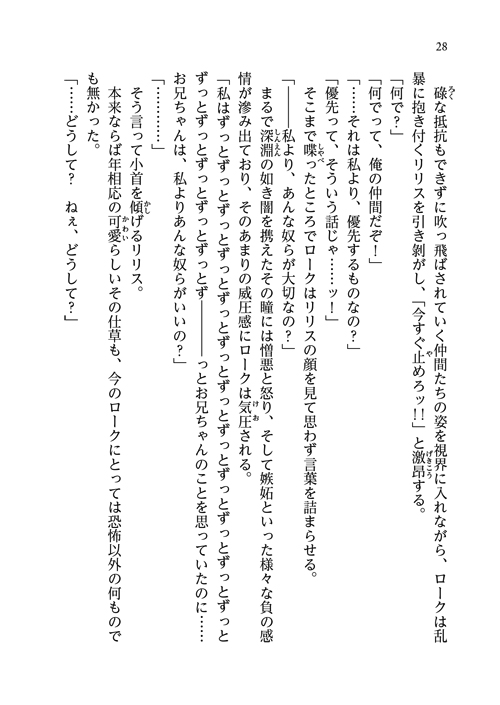 28
碌な抵抗もできずに吹っ飛ばされていく仲間たちの姿を視界に入れながら、ロークは乱
暴に抱き付くリリスを引き剝がし、「今すぐ止めろッ!!」と激昂する。
「何で?」
「何でって、俺の仲間だぞ!」
「……それは私より、優先するものなの?」
「優先って、そういう話じゃ……ッ!」
そこまで喋ったところでロークはリリスの顔を見て思わず言葉を詰まらせる。
「――私より、あんな奴らが大切なの?」
まるで深淵の如き闇を携えたその瞳には憎悪と怒り、そして嫉妬といった様々な負の感
情が滲み出ており、そのあまりの威圧感にロークは気圧される。
「私はずっとずっとずっとずっとずっとずっとずっとずっとずっとずっとずっとずっと
ずっとずっとずっとずっとずっとず――――っとお兄ちゃんのことを思っていたのに……
お兄ちゃんは、私よりあんな奴らがいいの?」
「…………」
そう言って小首を傾げるリリス。
本来ならば年相応の可愛らしいその仕草も、今のロークにとっては恐怖以外の何もので
も無かった。
「……どうして? ねぇ、どうして?」